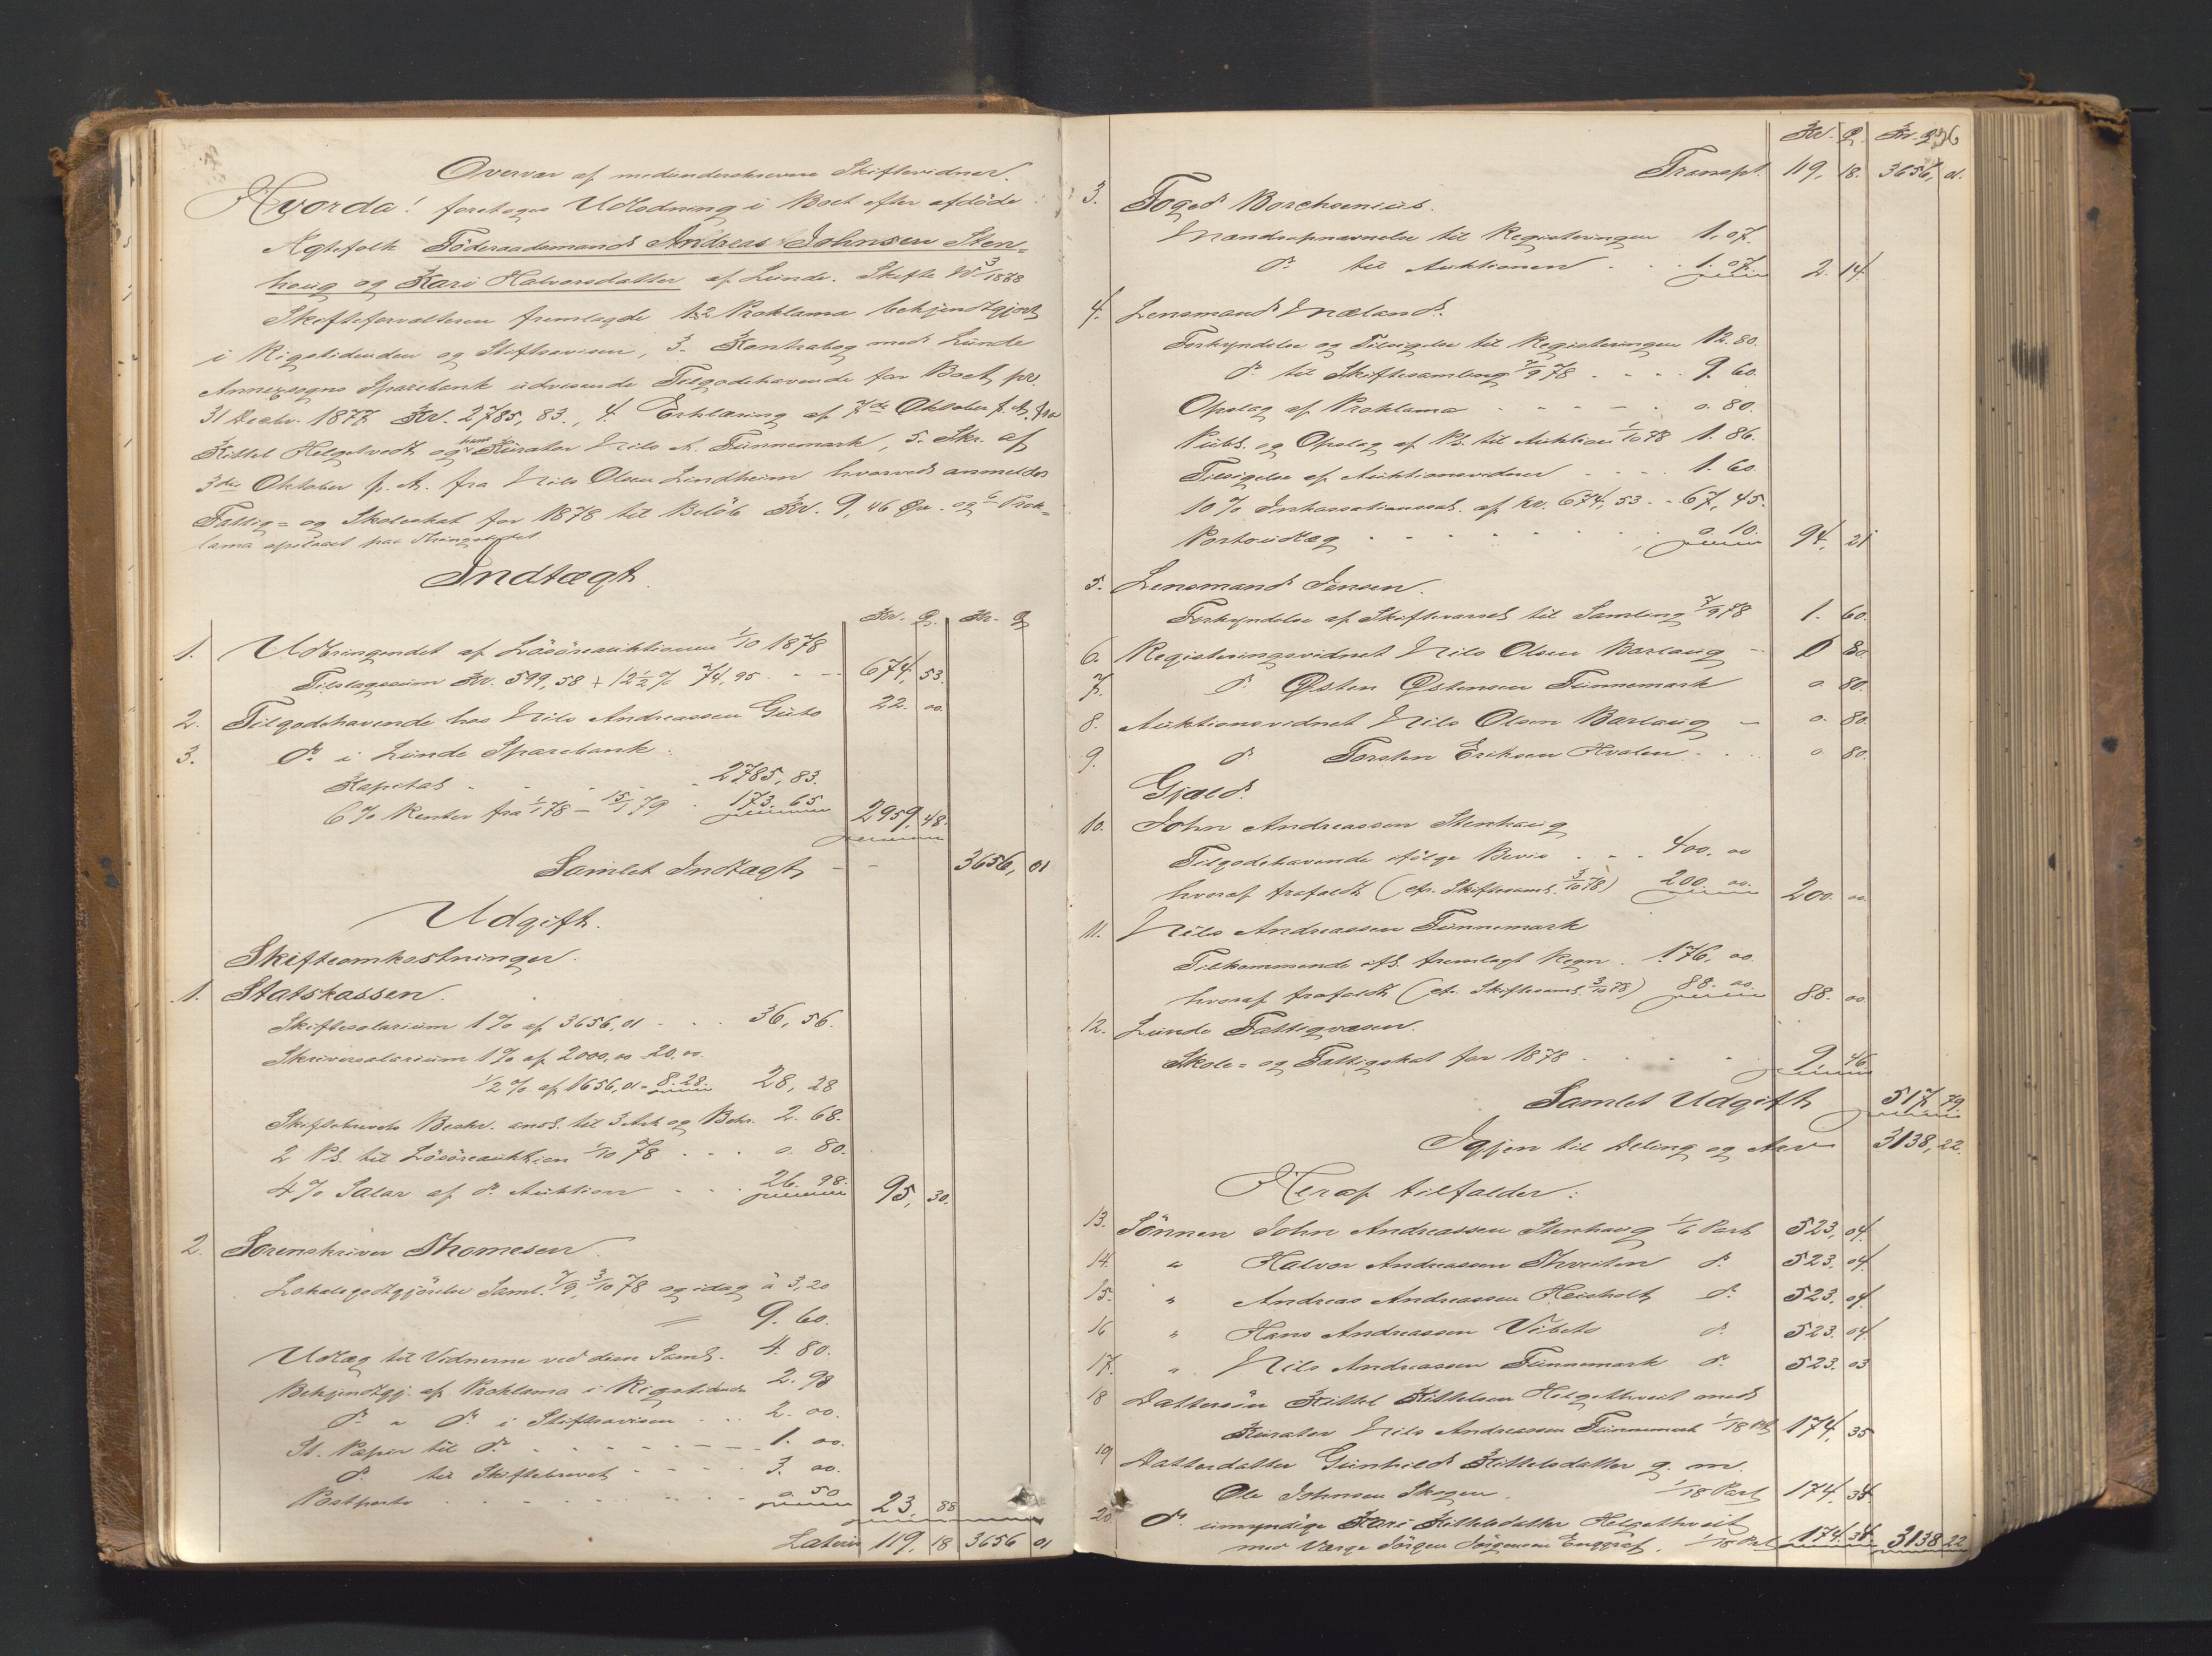 Overvær af medunderskrevne Skiftevidner.
Hvorda! foretoges Udlodning i Boet efter afdöde
Ægtefolk Föderaadsmand Andreas Johnsen Sten=
houg og Kari Halvorsdatter af Lunde. Skifte No 3/1878
Skifteforvalteren fremlagde 1-2 Proklama bekjendtgjort
i Rigstidenden og Stiftsavisen, 3. Kontrabog med Lunde
Annexsogns Sparebank udvisende Tilgodehavende for Boet pr.
31 Decbr. 1877 Kr. 2785,83., 4. Erklæring af 7de Oktober f. A. fra
Kittel Helgetvedt og hans Kurator Nils A. Tunnemark, 5. Skr. af
3die Oktober f. A. fra Nils Olsen Lindheim hvorved anmeldes
Fattig= og Skoleskat for 1878 til Belöb Kr. 9,46 Ør. og 6 Prok=
lama opslaaet paa Thingstedet
Indtægt.
Kr. Ø. Kr. Ø
1. Udbringendet af Lösöreauktionen 1/10 1878
Tilslagssum Kr. 599,58 + 12½% 74,95 - - 674, 53.
2. Tilgodehavende hos Nils Andreassen Gurto 22. 00.
3. do i Lunde Sparebank.
Kapital - - - 2785,83.
6% Renter fra 1/1 78 - 15/1 79 . 173. 65 2959, 48.
Samlet Indtægt - - 3656, 01
Udgift.
Skifteomkostninger.
1. Statskassen.
Skiftesalarium 1% af 3656,01 - . . 36, 56.
Skriversalarium 1% af 2000,00 20,00.
1/2% af 1656,01 = 8.28. 28, 28
Skiftebrevets Beskr. ansl. til 3 Ark og Bekr. 2. 68.
2 Pl. til Lösöreauktion 1/10 78 . . . 0. 80.
4% Salar af do Auktion - . . 26. 98. 95, 30.
2. Sorenskriver Thomesen.
Lokalegodtgjörelse Saml. 7/9, 3/10 78 og idag à 3,20
= 9. 60.
Udlæg til Vidnerne ved disse Saml. 4. 80.
Bekjendtgj. af Proklama i Rigstidende 2. 98
do " do i Stiftsavisen . . . 2. 00.
St. Papir til do . - - - - 1. 00.
do til Skiftebrevet - - - - 3. 00.
Postporto . - - - - 0. 50 23. 88
Lateris 119. 18 3656 01
236
Kr. Ø. Kr. Ø
Transpt. 119, 18. 3656, 01.
3. Foged Borchsenius.
Mandsopnævnelse til Registeringen 1. 07.
do til Auktionen . . . 1. 07. 2. 14.
4. Lensmand Mæland.
Forkyndelse og Tilsigelse til Registeringen 12. 80.
do til Skiftesamling 7/9 78 . . . . 9. 60.
Opslag af Proklama - - - - . 0. 80.
Publ. og Opslag af Pl. til Auktion 1/10 78 1. 86.
Tilsigelse af Auktionsvidner - . . . 1. 60.
10% Inkassationssal. af Kr. 674,53 - - 67,45.
Portoudlæg . . . . . 0. 10. 94. 21
5. Lensmand Jensen.
Forkyndelse af Skiftevarsel til Samling 7/9 78 1. 60.
6. Registeringsvidnet Nils Olsen Barlaug - 0 80
7. do Østen Østensen Tunnemark 0. 80.
8. Auktionsvidnet Nils Olsen Barlaug - 0. 80.
9. do Torsten Eriksen Hvalen . . . 0. 80.
Gjæld.
10. John Andreassen Stenhaug
Tilgodehavende ifölge Bevis . . . 400. 00
hvoraf frafaldt (cfr. Skiftesaml. 3/10 78) 200. 00. 200. 00.
11. Nils Andreassen Tunnemark
Tilkommende ifl. fremlagt Regn . 176, 00.
hvoraf frafaldt (cfr. Skiftesaml. 3/10 78) 88. 00. 88. 00.
12. Lunde Fattigvæsen.
Skole= og Fattigskat for 1878 . . . . 9. 46
Samlet Udgift 517, 79.
Igjen til Deling og Arv 3138, 22.
Heraf tilfalder:
13. Sönnen John Andreassen Stenhaug 1/6 Part 523, 04.
14. " Halvor Andreassen Skveiten do. 523. 04.
15. " Andreas Andreassen Heisholt do. 523. 04.
16 " Hans Andreassen Vibeto do. 523. 04.
17. " Nils Andreassen Tunnemark do. 523. 03
18 Dattersön Kittel Kittelsen Helgethveit med
Kurator Nils Andreassen Tunnemark 1/18 Prt 174, 35
19 Datterdatter Gunhild Kittelsdatter g. m.
Ole Johnsen Skogen. 1/18 Part 174, 34.
20 do umyndige Kari Kittelsdatter Helgethveit
med Værge Jörgen Jörgensen Enggraf. 1/18 Prt 174. 34. 3138 22